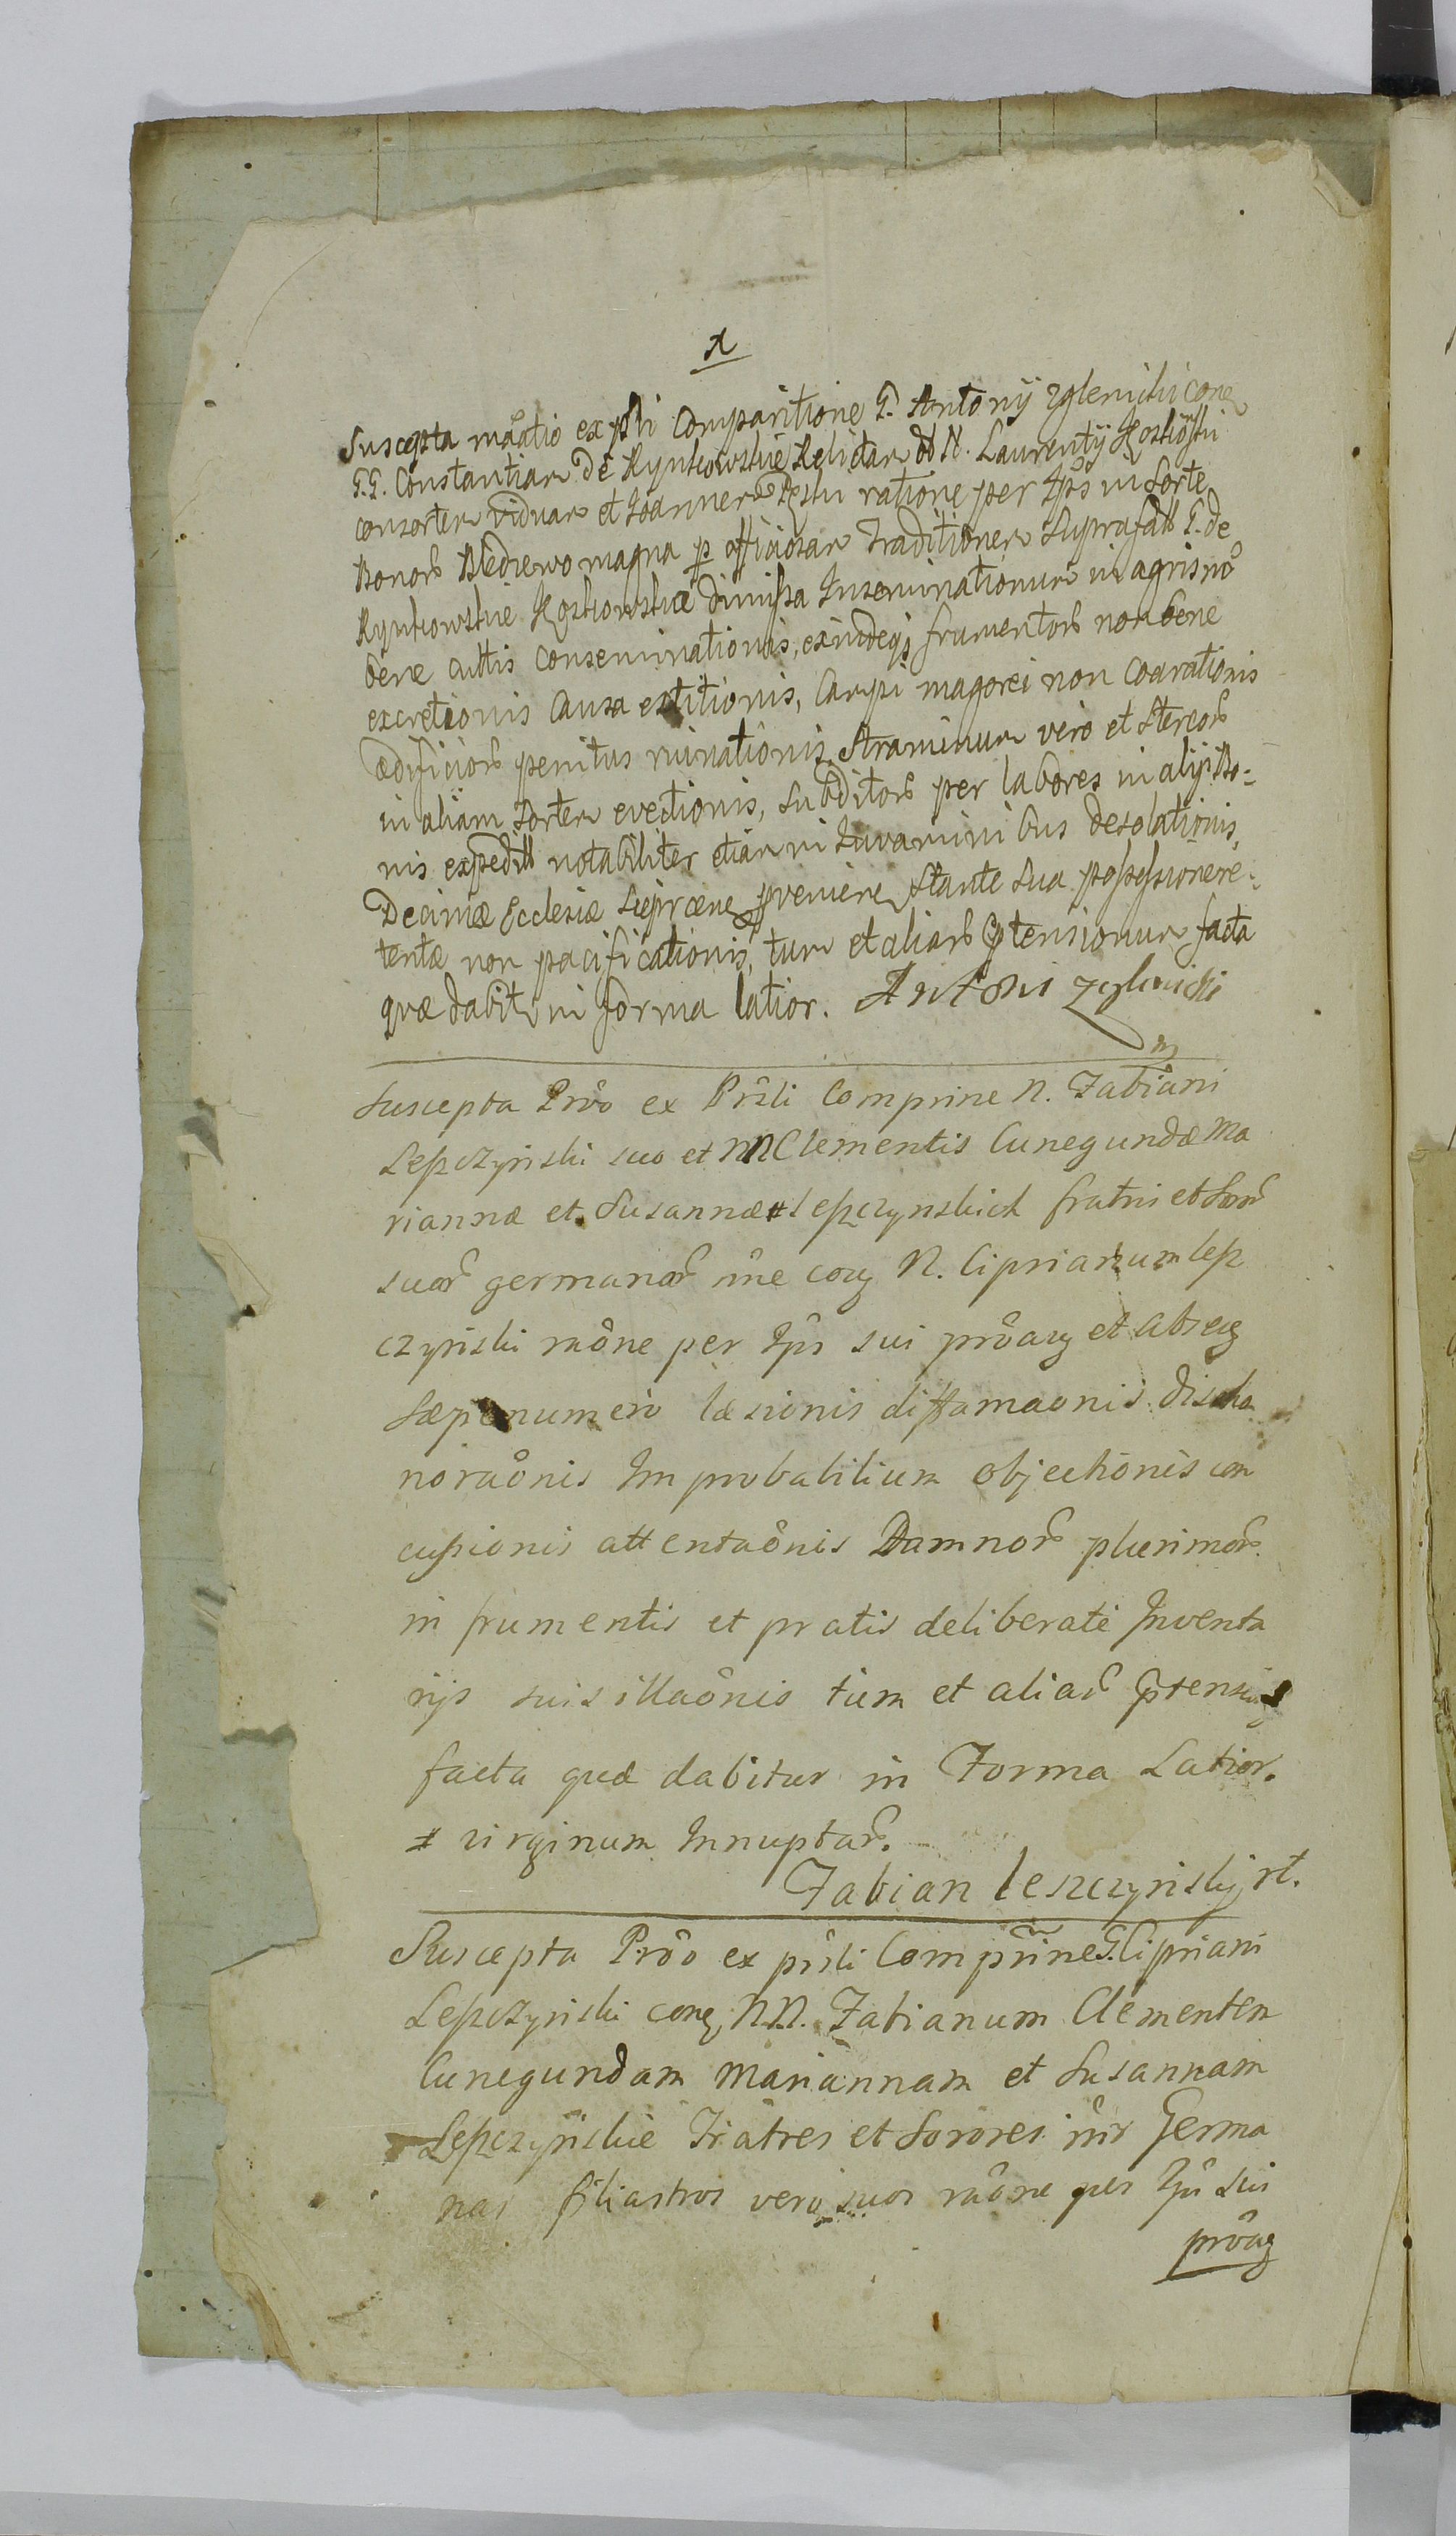 A
Suscepta mãatio ex pñti Comparitione G. Antonij Zglenicki cone
G.G. Constantiam de Rynkowskie Relictam ol N. Laurentij Kostkowski
consortem viduam et Joannem Pestu ratione per Ips in Sorte
Bonorum Bledzewo magna p officiosam Traditionem Suprafatt G. de
Rynkowskie Kostkowskie dimissa Inseminationum in agris nõ
bene cultis conseminationis, exindeqs frumentorum non bene
excretionis causa extitionis, Campi magorei non coarationis
ædificiorum penitus ruinationis, Straminum vero et Stercorum
in aliam Sortem evectionis, Subditorum per labores in alijs Bo-
nis expeditt notabiliter etiam in Juvamini bus desolationis,
Decimæ Ecclesiæ Lieprcene pveniene Stante Sua possessione re-
tentæ non pacificationis, tum et aliarum Ptensionum facta
quæ dabitr in forma latior. Antoni Zglenicki
mp
Suscepta Prõo ex Prñti Comprine N. Fabiani
Lepczynski suo et NN Clementis Cunegundæ Ma
riannæ et Susannæ # Lepczynskich fratrũ et Soror
suar germanar nñe coñ N. Ciprianum Lep
czynski raõne per Ips sui prõãz et absez
Sæpenumero læsionis diffamaonis disho
noraõnis Improbabilium objectionis con
cussionis attentaõnis Damnor plurimor
in frumentis et pratis deliberate Inventa
rijs suis illaõnis tum et aliar Ptensionũ
facta quæ dabitur in Forma Latior.
# virginum Innuptar.
Fabian Leszczynskij rt.
Suscepta Prõo ex prñti Comprine G. Cipriani
Lepczynski cone NN. Fabianum Clementem
Cunegundam Mariannam et Susannam
Lepczynskie Fratres et Sorores inr Germa
nas filiastros vero suos raõne per Ips sui
prõãz